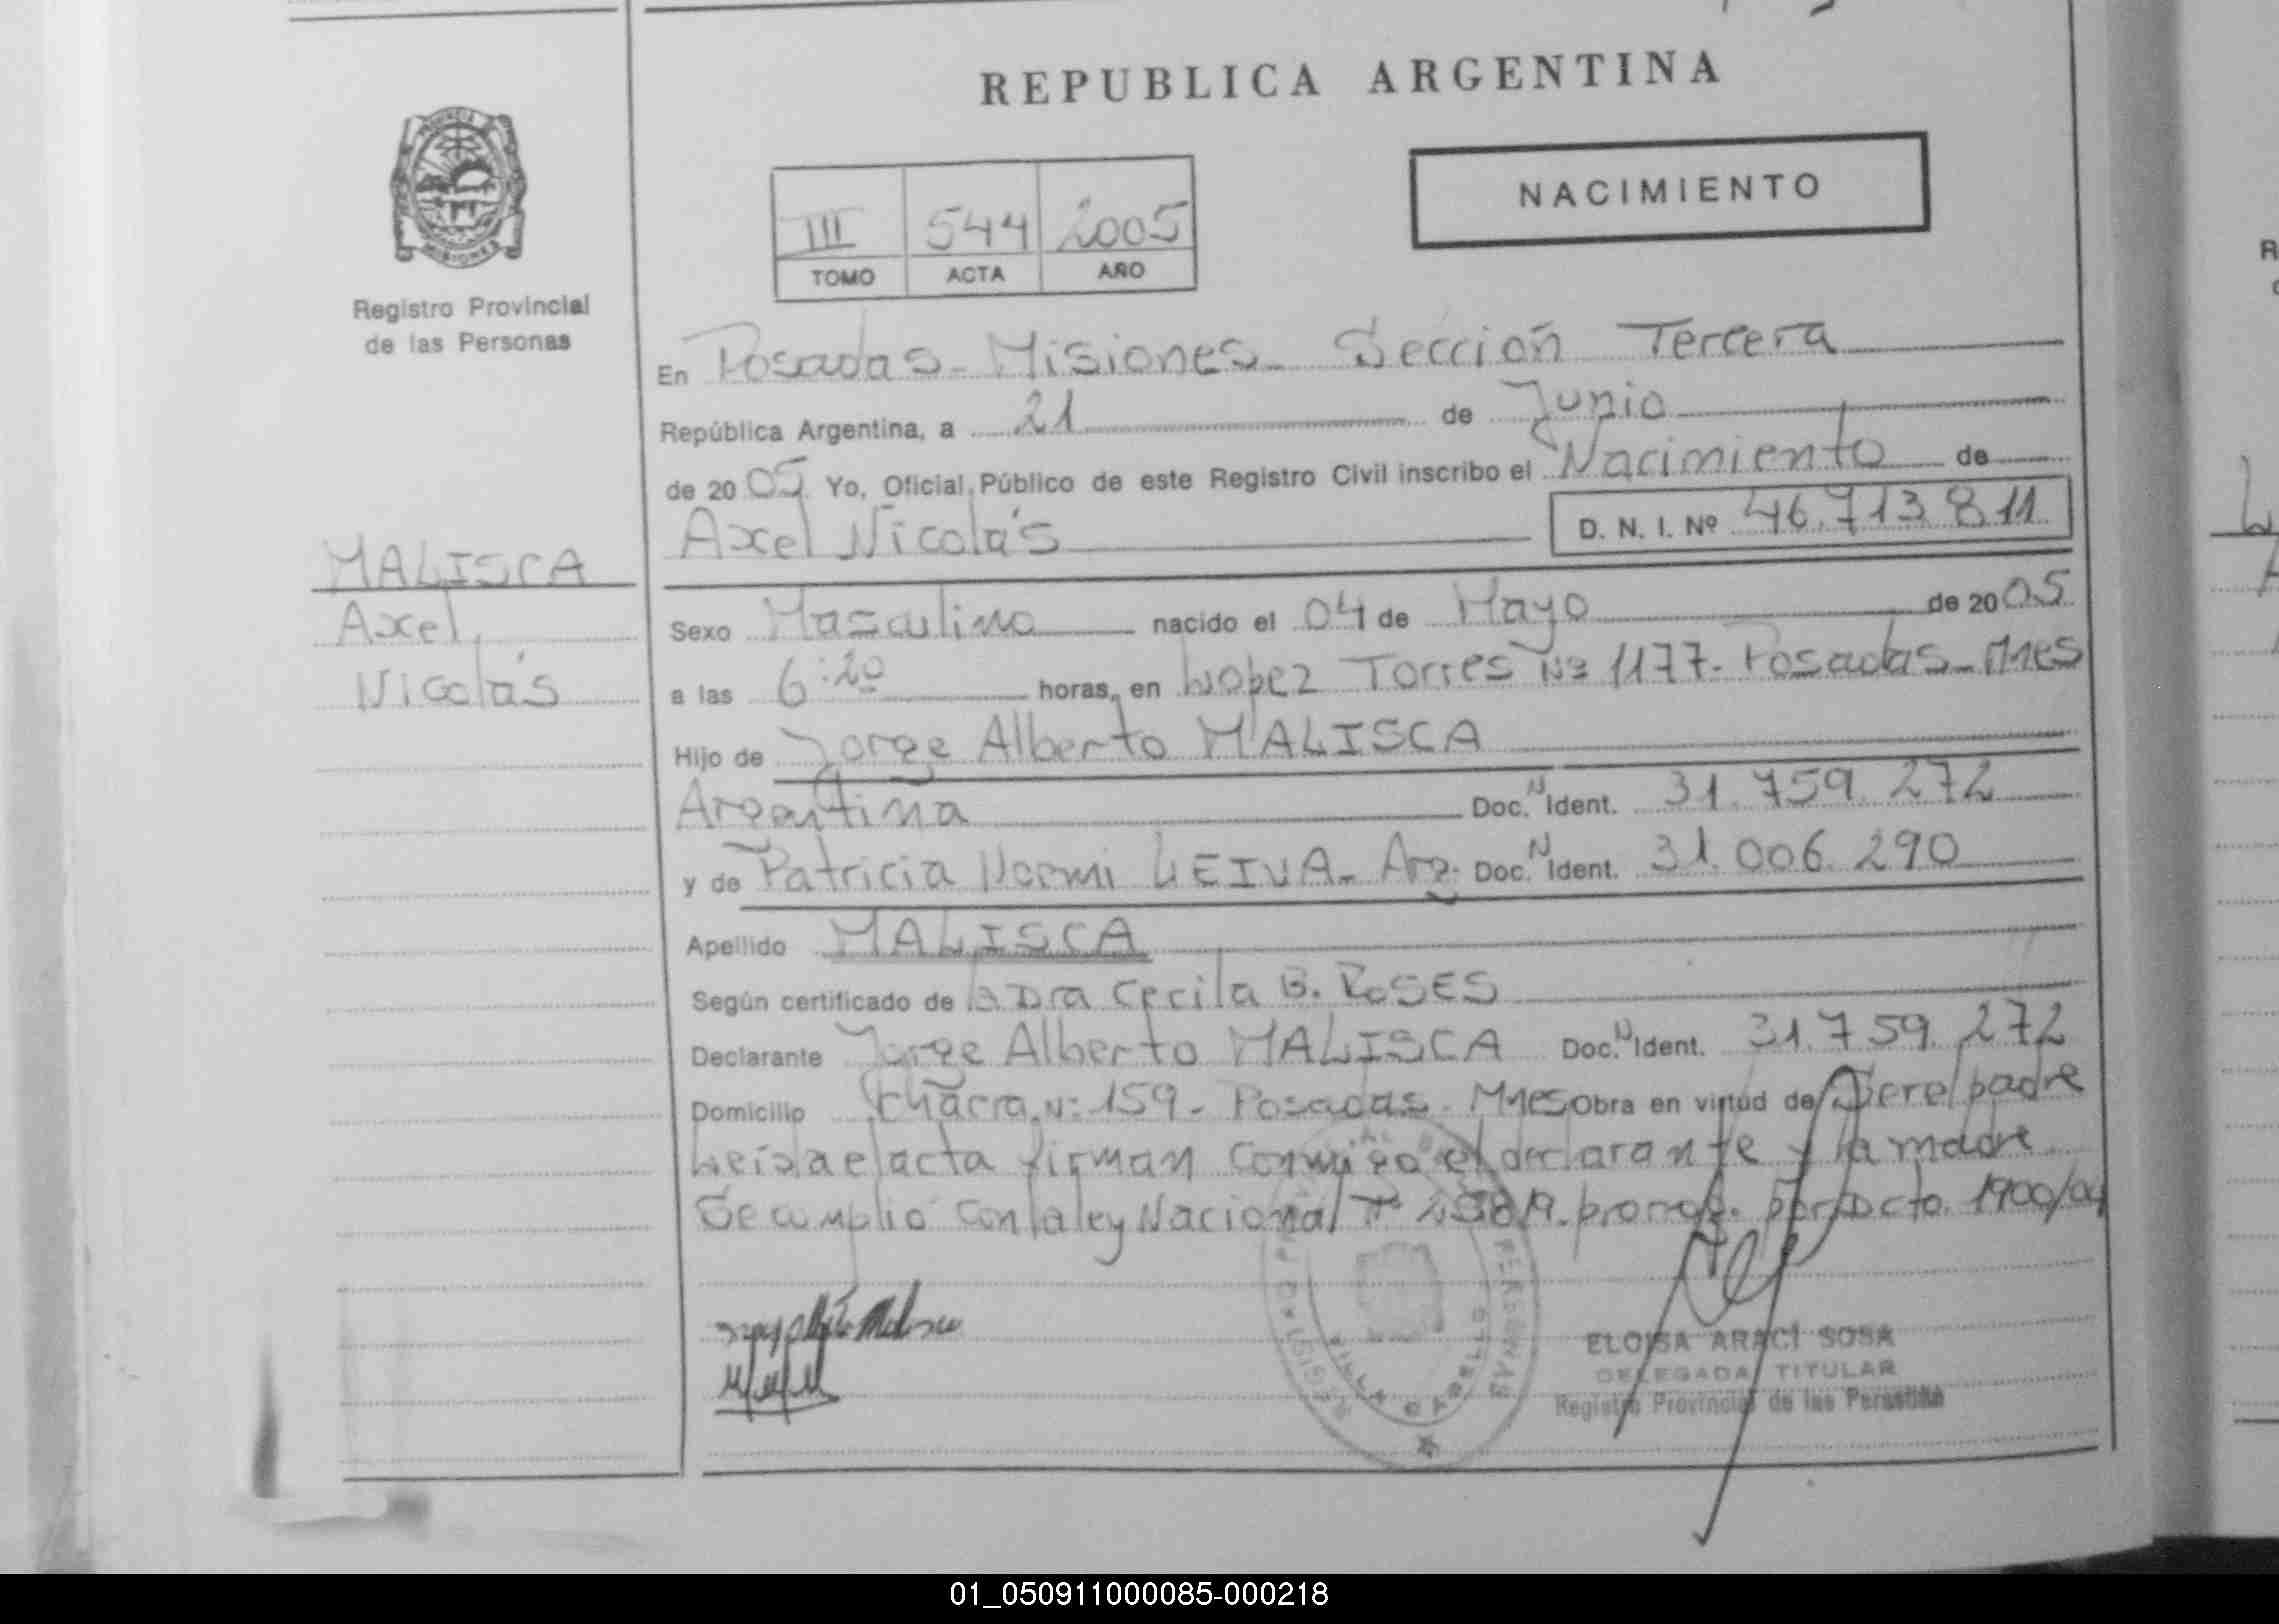 REPUBLICA ARGENTINA
NACIMIENTO
III 544 2005
TOMO ACTA AÑO
PROVINCIA DE
MISIONES
Registro Provincial
de las Personas
MALISCA
Axel
Nicolás
En Posadas - Misiones - Sección Tercera
República Argentina, a 21 de Junio
de 2005 Yo, Oficial Público de este Registro Civil inscribo el Nacimiento de
Axel Nicolás D. N. I. Nº 46.713.811
Sexo Masculino nacido el 04 de Mayo de 2005
a las 6:20 horas, en López Torres Nº 1177 - Posadas - Mnes
Hijo de Jorge Alberto MALISCA
Argentina Doc. N Ident. 31.759.272
y de Patricia Noemi LEIVA - Arg. Doc. N Ident. 31.006.290
Apellido MALISCA
Según certificado de la Dra Cecila B. ROSES
Declarante Jorge Alberto MALISCA Doc. N Ident. 31.759.272
Domicilio Chacra Nº 159 - Posadas - Mnes Obra en virtud de Ser el padre
Leida el acta firman conmigo el declarante y la madre
Se cumplió con la ley Nacional prorrog. por Dcto. 1900/04
ELOISA ARACI SOSA
DELEGADA TITULAR
Registro Provincial de las Personas
01_050911000085-000218